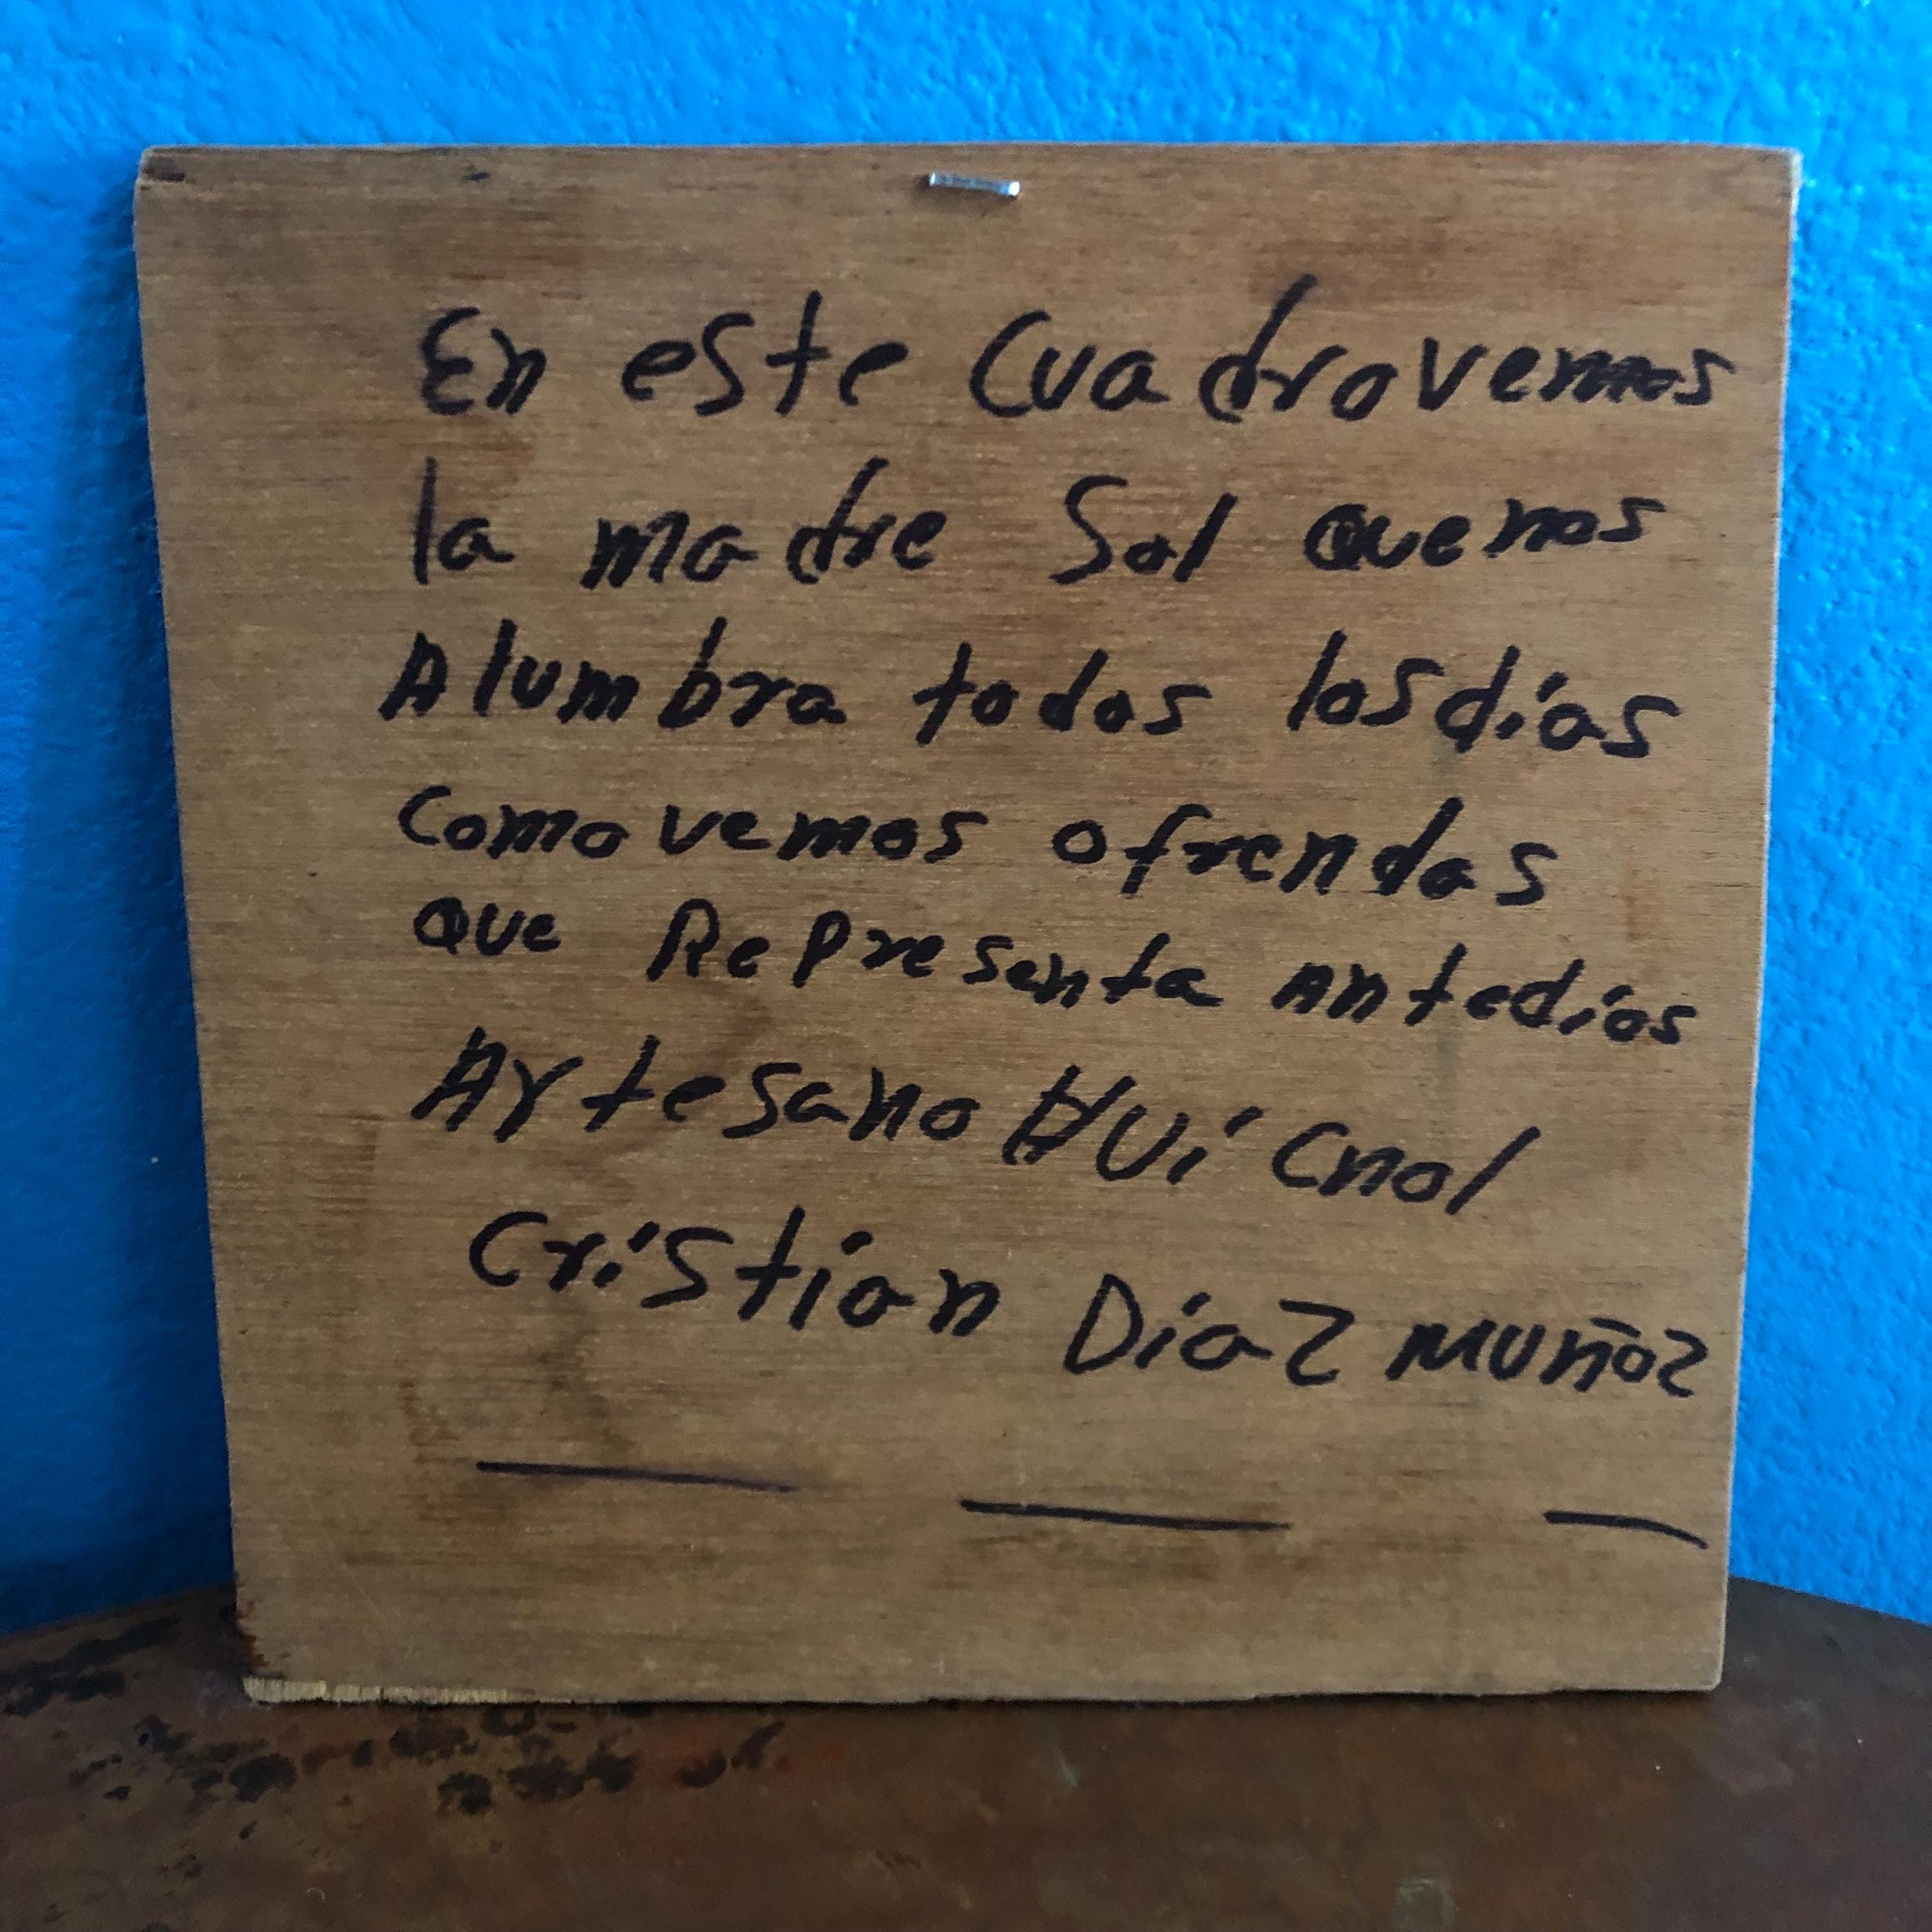 En este Cuadro vemos
la madre Sol que nos
Alumbra todos los días
Como vemos ofrendas
que Representa Ante dios
Artesano Huichol
Cristian Díaz muñoz